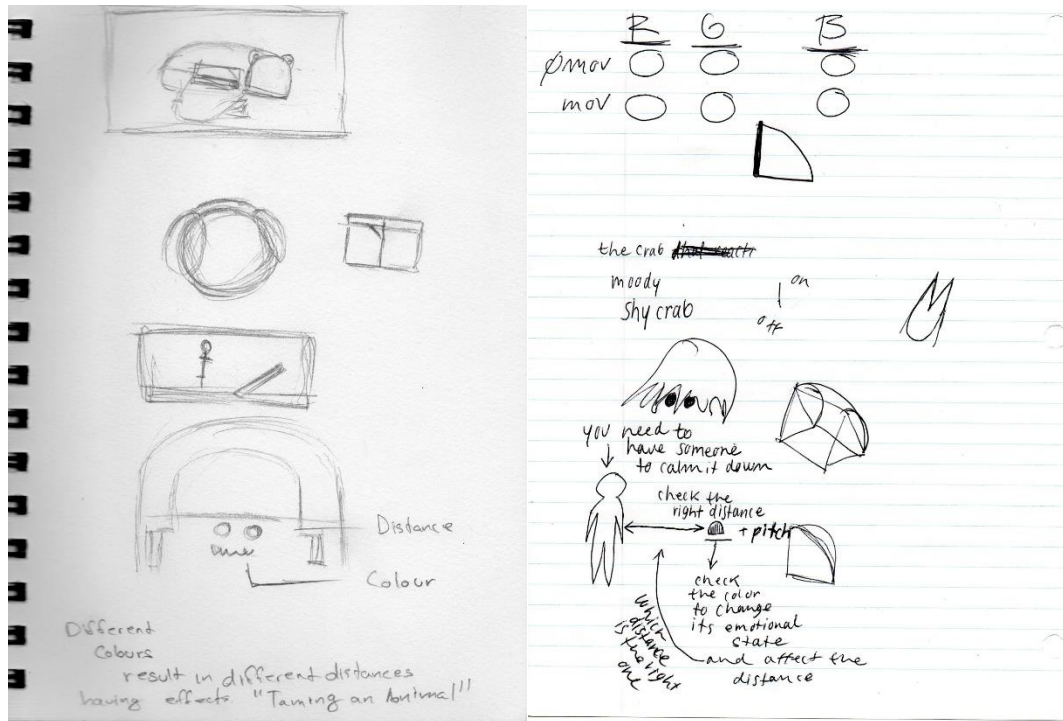 Distance
Colour
Different
Colours
result in different distances
having effects. "Taming an Animal"
R G B
Ømov
mov
the crab
moody
shy crab
on
off
you need to
have someone
to calm it down
check the
right distance
+ pitch
check
the color
to change
its emotional
state
and affect the
distance
which
distance
is the right
one